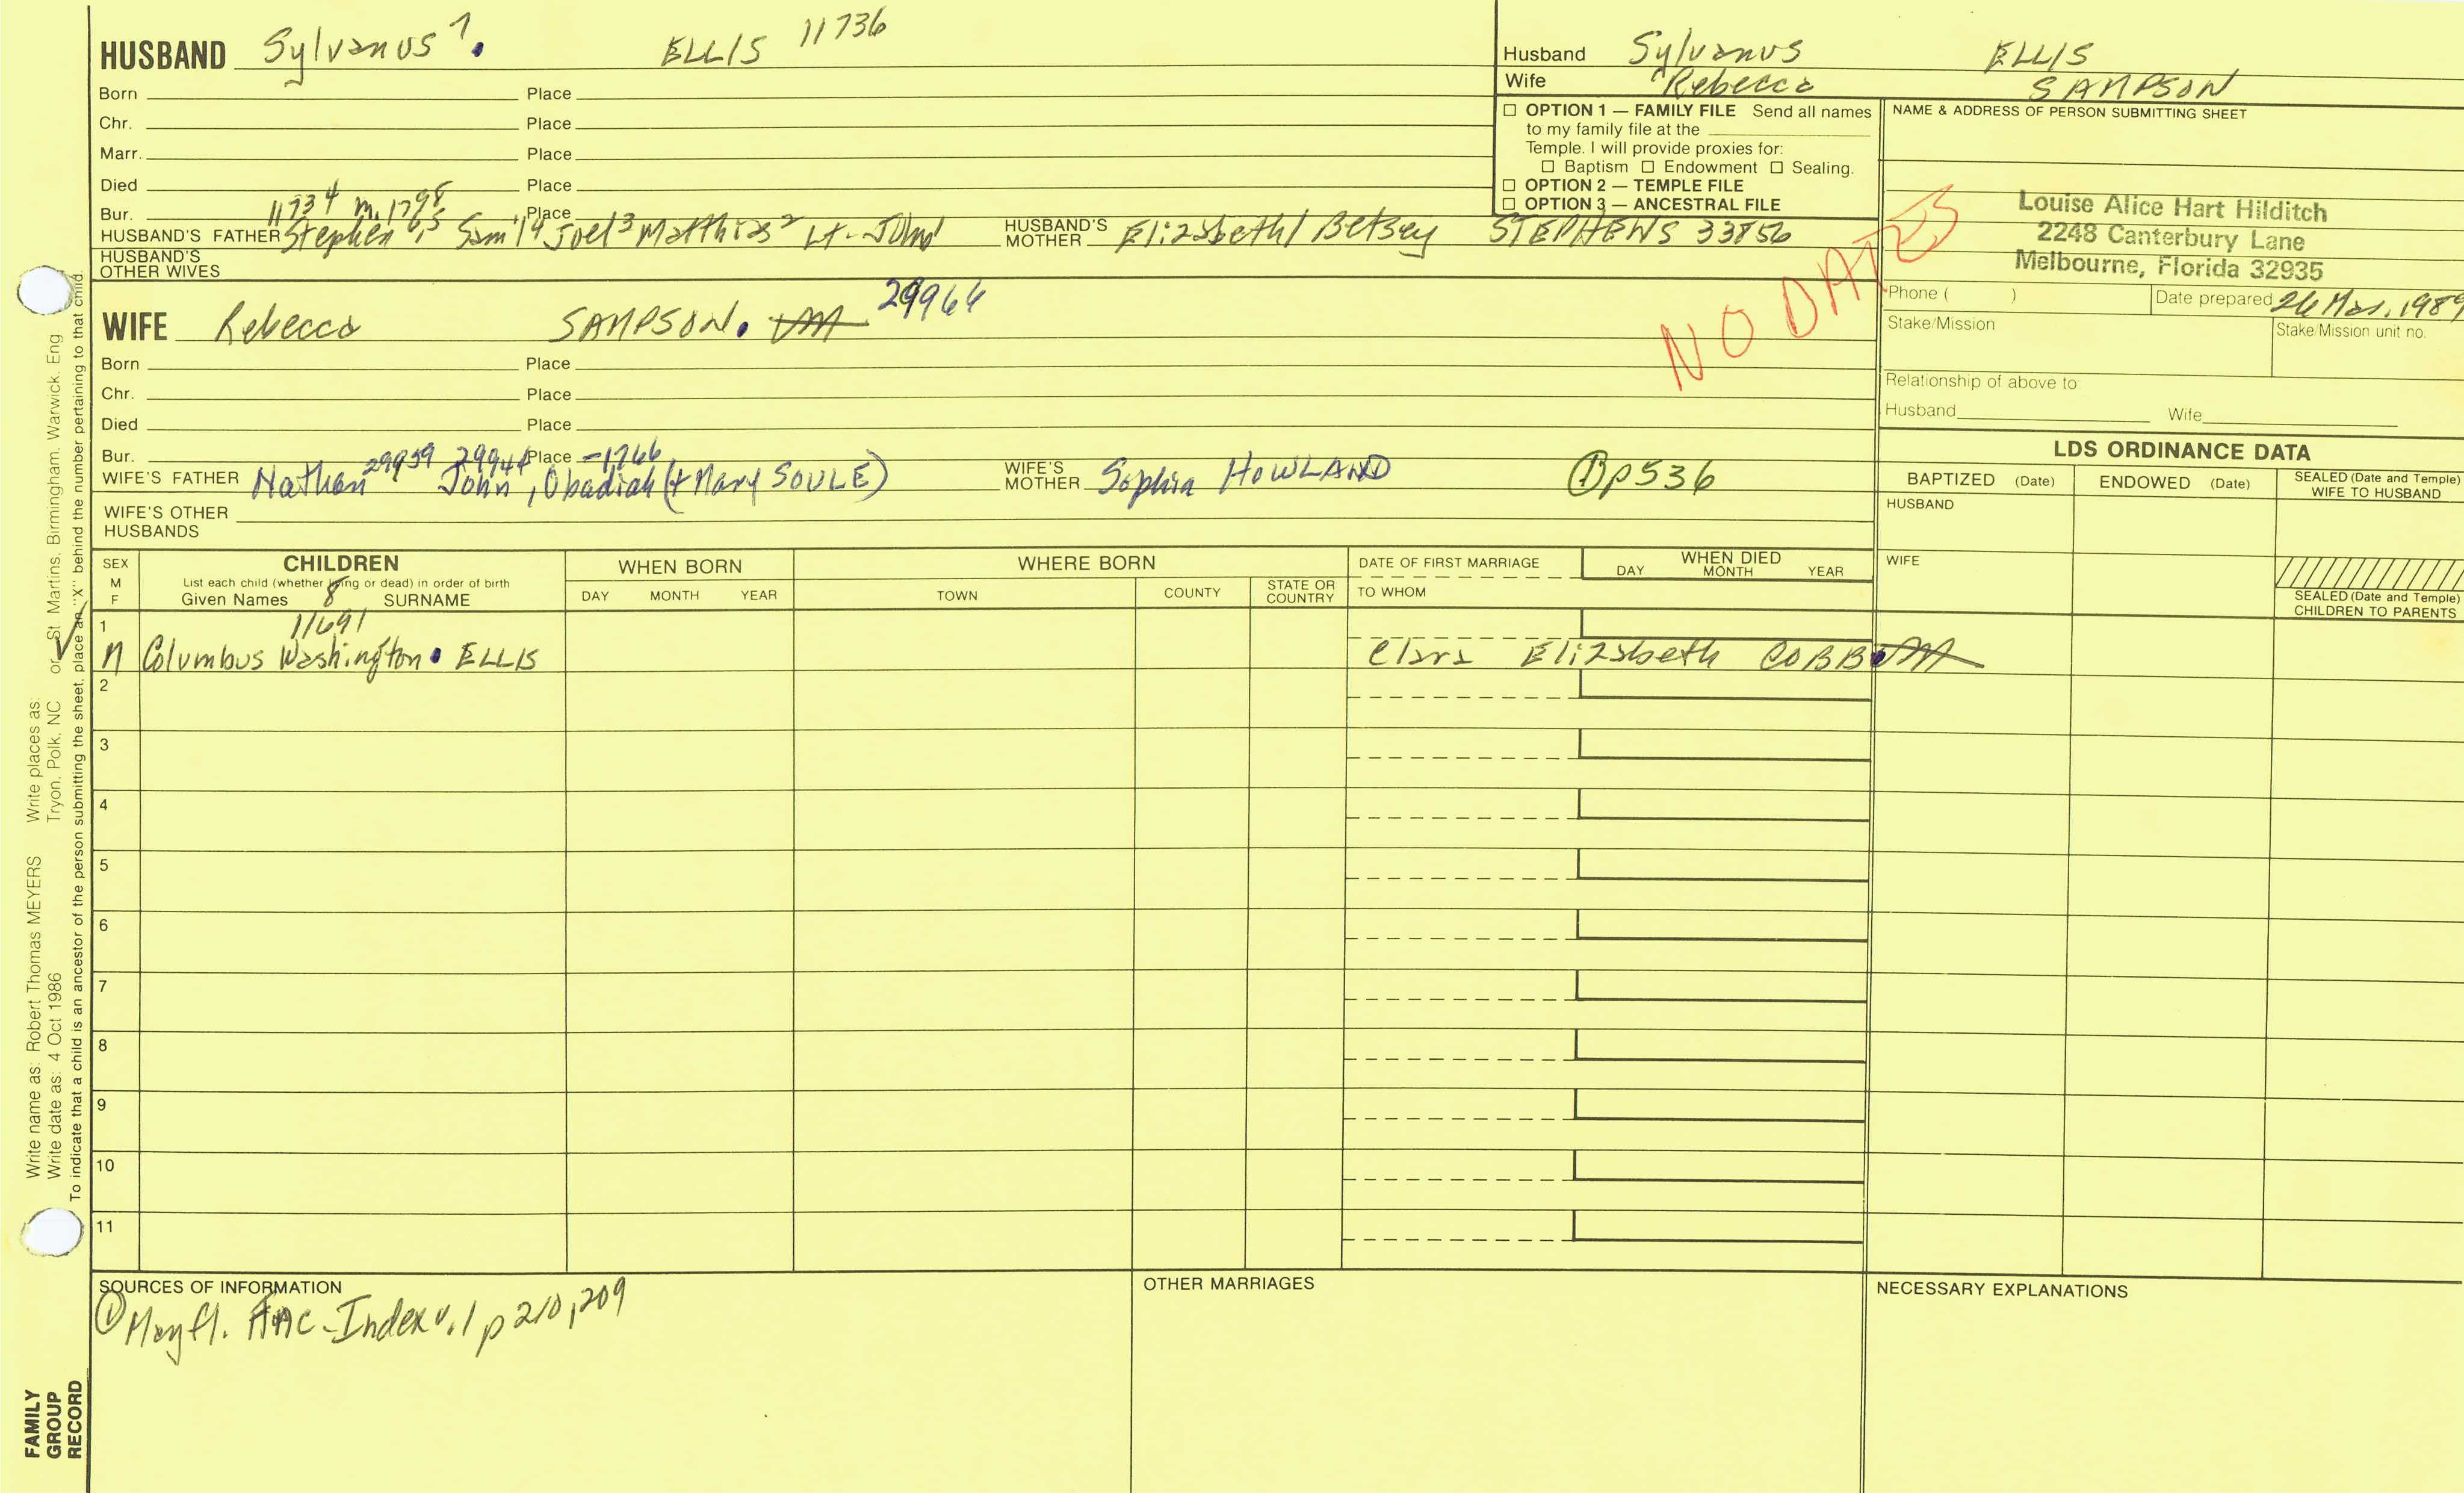 HUSBAND Sylvanus 7. ELLIS 11736
Born Place
Chr. Place
Marr. Place
Died Place
Bur. Place
11734 m. 1798
HUSBAND'S FATHER Stephen 6,5 Sam'l 4 Joel 3 Matthias 2 Lt. John 1 HUSBAND'S MOTHER Elizabeth/Betsey STEPHENS 33856
HUSBAND'S OTHER WIVES
Husband Sylvanus ELLIS
Wife Rebecca SAMPSON
☐ OPTION 1 — FAMILY FILE Send all names
to my family file at the
Temple. I will provide proxies for:
☐ Baptism ☐ Endowment ☐ Sealing.
☐ OPTION 2 — TEMPLE FILE
☐ OPTION 3 — ANCESTRAL FILE
NAME & ADDRESS OF PERSON SUBMITTING SHEET
Louise Alice Hart Hilditch
2248 Canterbury Lane
Melbourne, Florida 32935
NO DATES
Phone ( ) Date prepared 26 Mar. 1989
Stake/Mission Stake/Mission unit no.
Relationship of above to:
Husband Wife
WIFE Rebecca SAMPSON. 29964
Born Place
Chr. Place
Died Place
Bur. Place
29959 29944 -1766
WIFE'S FATHER Nathan John, Obadiah (+ Mary SOULE) WIFE'S MOTHER Sophia HOWLAND ① p536
WIFE'S OTHER HUSBANDS
LDS ORDINANCE DATA
BAPTIZED (Date) ENDOWED (Date) SEALED (Date and Temple) WIFE TO HUSBAND
HUSBAND
WIFE
SEALED (Date and Temple) CHILDREN TO PARENTS
SEX M F
CHILDREN
List each child (whether living or dead) in order of birth
Given Names 8 SURNAME
WHEN BORN
DAY MONTH YEAR
WHERE BORN
TOWN COUNTY STATE OR COUNTRY
DATE OF FIRST MARRIAGE
TO WHOM
WHEN DIED
DAY MONTH YEAR
1 11691
M Columbus Washington. ELLIS Clara Elizabeth COBB
2
3
4
5
6
7
8
9
10
11
SOURCES OF INFORMATION
① Mayfl. Index v.1 p 210, 209
OTHER MARRIAGES
NECESSARY EXPLANATIONS
Write name as: Robert Thomas MEYERS Write places as: Tryon, Polk, NC or St Martins, Birmingham, Warwick, Eng
Write date as: 4 Oct 1986
To indicate that a child is an ancestor of the person submitting the sheet, place an "X" behind the number pertaining to that child.
FAMILY
GROUP
RECORD